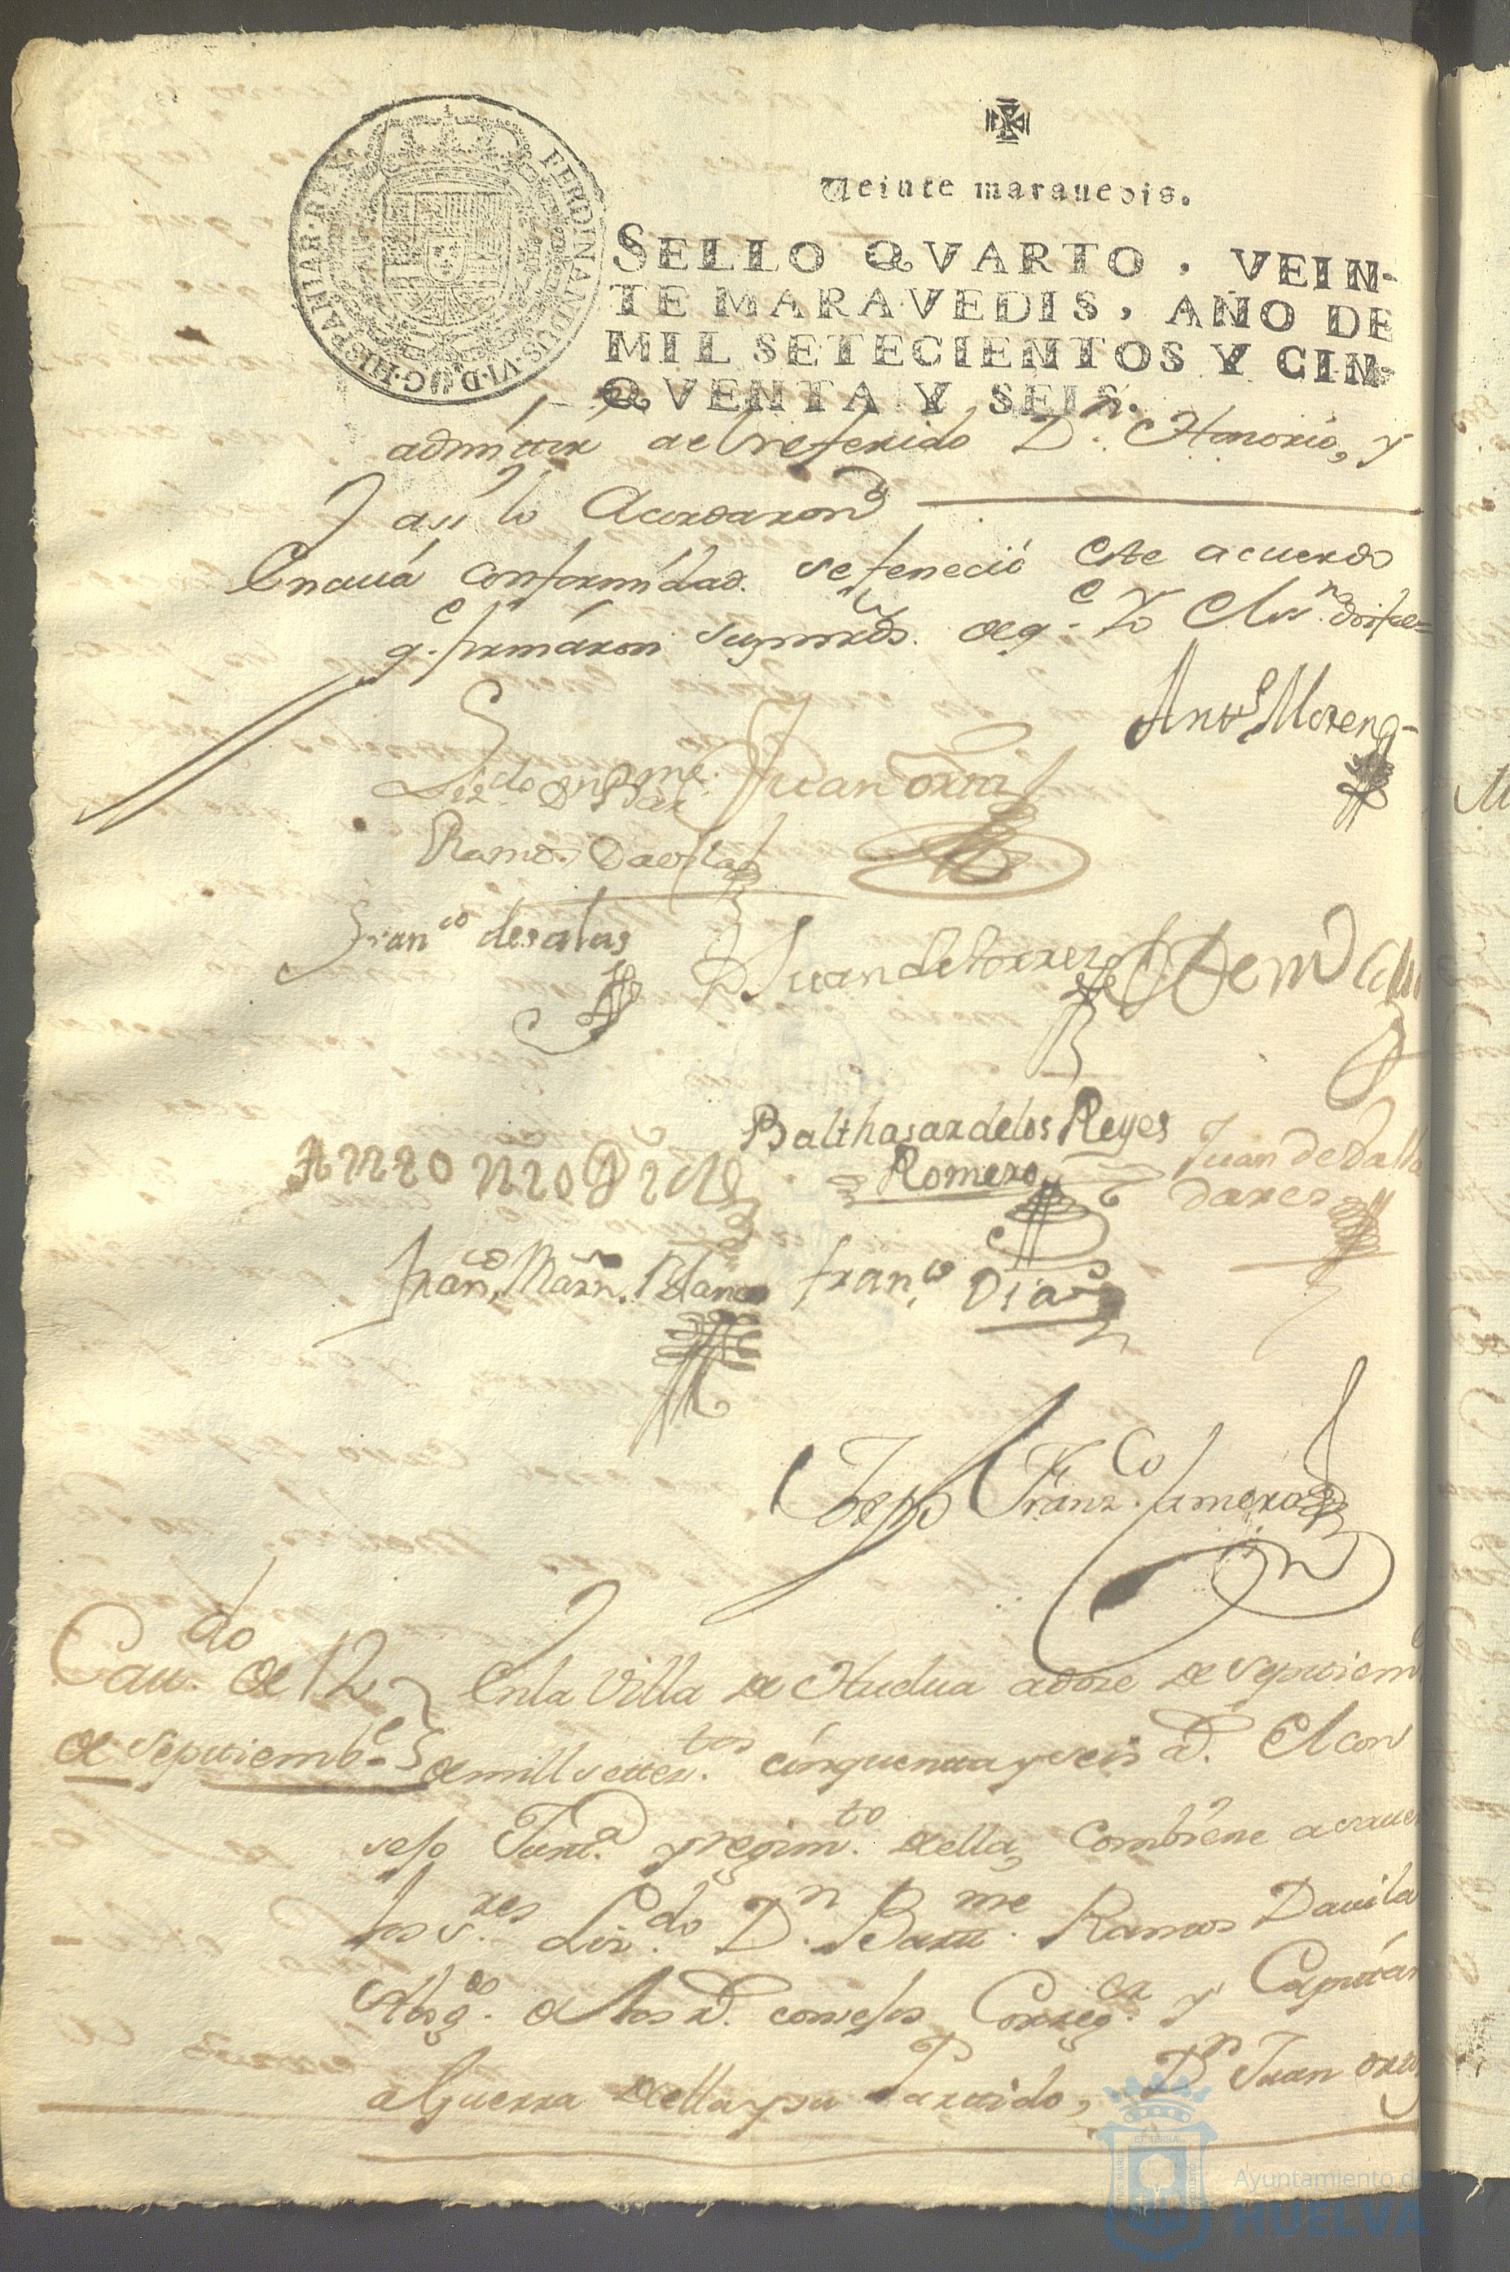 FERDINANDUS·VI·D·G·HISPANIAR·REX
Veinte maravedis.
SELLO QVARTO, VEIN-
TE MARAVEDIS, AÑO DE
MIL SETECIENTOS Y CIN-
QVENTA Y SEIS.
admitir del referido Dn. Honorio, y
asi lo Acordaron
En cuia conformidad se feneció este acuerdo
q.e firmaron sus mrds. de q.e Yo el Ess.no doi fee=
Antto Moreno
Lizdo Dn Barme.
Juan
Ramos Davila
Franco de salas
D Juan de torres
Balthasar de los Reyes
Romero
Juan de Valla
dares
Franco Marn. Blanco
franco Dias
Joseph Franzco
Cavdo de 12
de septiembe
En la Villa de Huelua a doze de septiem
de mill setezos cinquenta y seis as. El con
sejo Justa. y regimto della, combiene a sauer
los sres Lizdo Dn Barttme Ramos Davila
Abogdo de los Rs. consejos Corregor y Capitán
a Guerra della y su Partido, Dn Juan
Ayuntamiento de
HUELVA